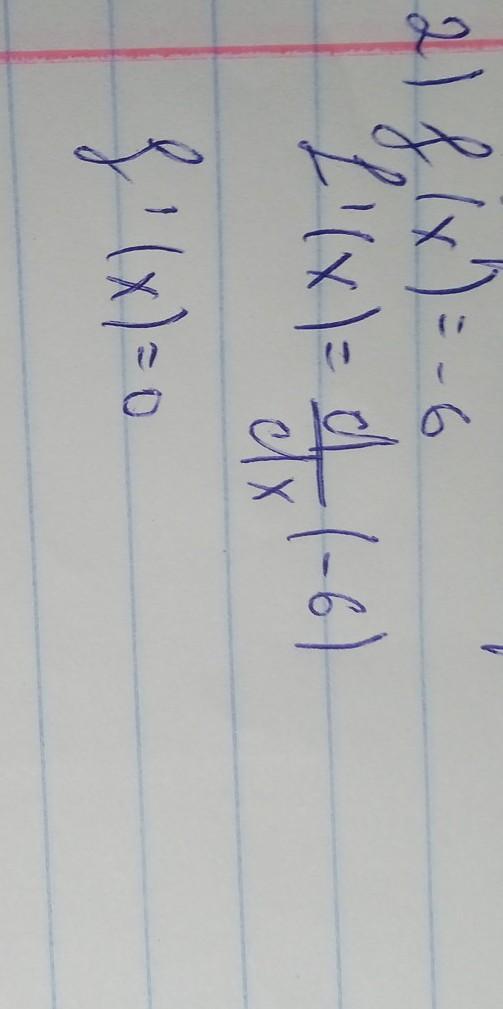 2) f(x) = -6
f'(x) = d/dx (-6)
f'(x) = 0